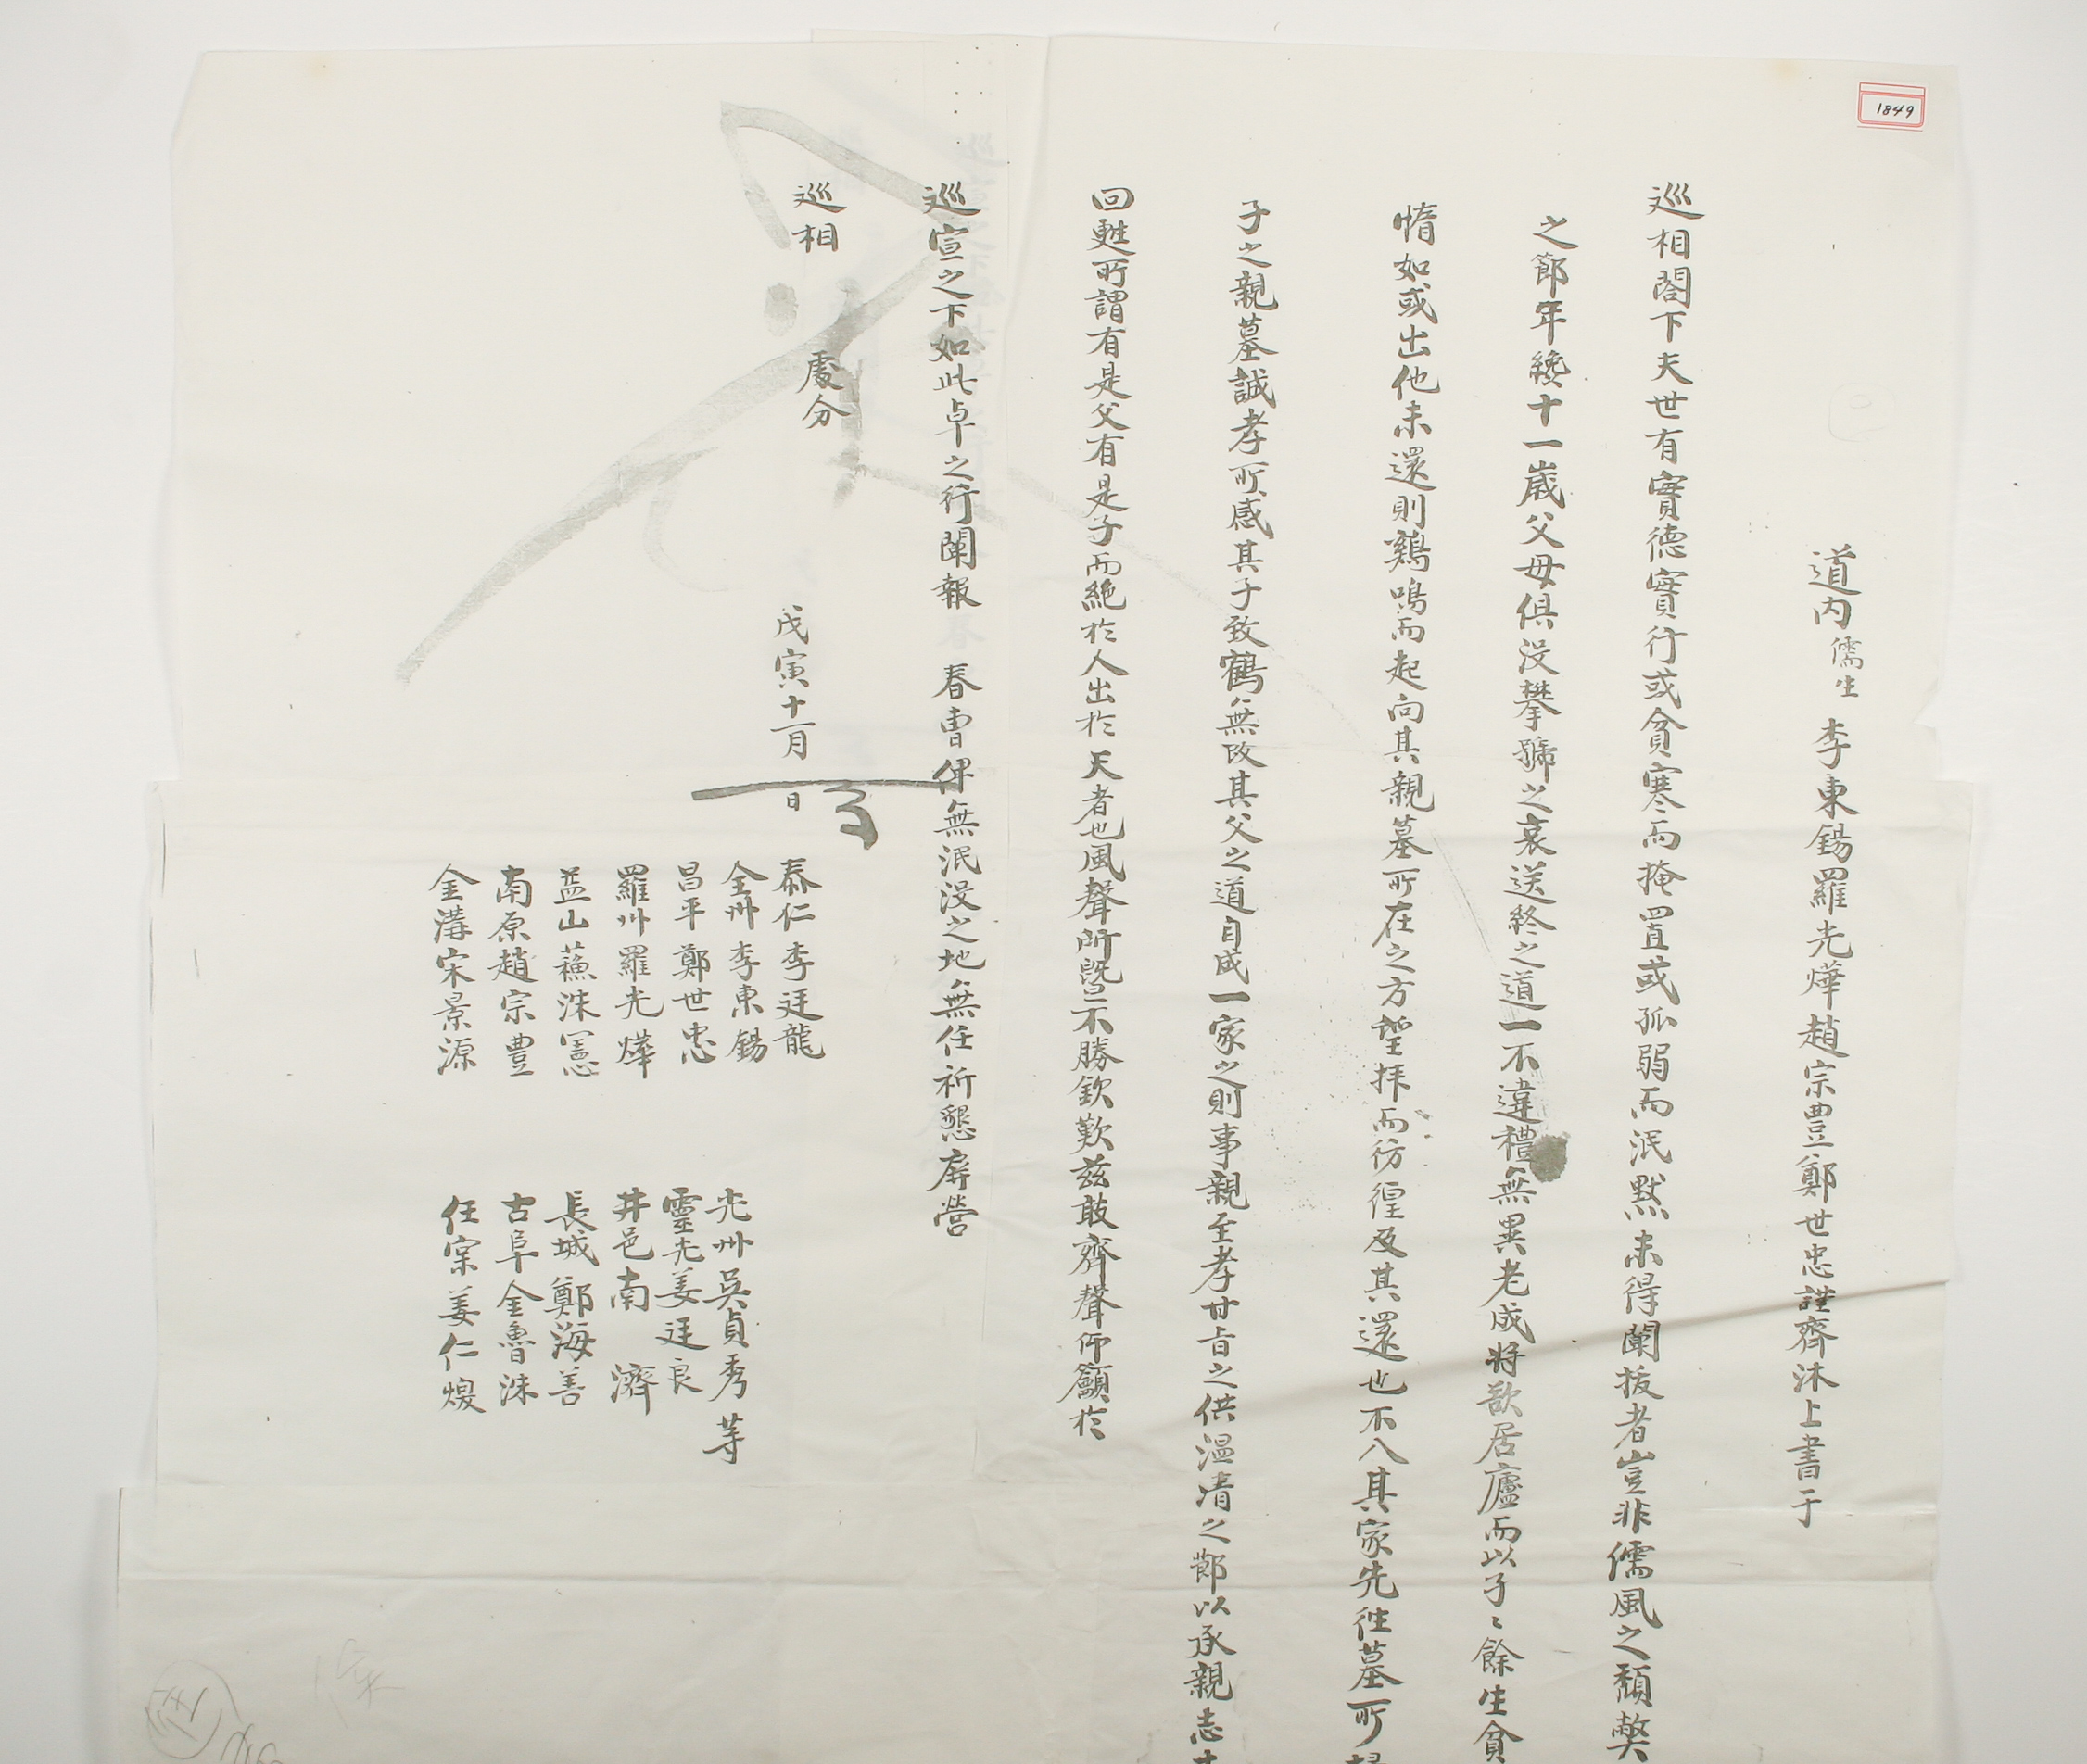 1849
道內儒生 李東錫羅光燁趙宗豊鄭世忠謹齊沐上書于
巡相閤下夫世有實德實行或貧寒而掩置或孤弱而泯默未得闡拔者豈非儒風之頹獘
之節年纔十一歲父母俱沒攀號之哀送終之道一不違禮無異老成將欲居廬而以孑〻餘生貧
惰如或出他未還則鷄鳴而起向其親墓所在之方望拜而彷徨及其還也不入其家先徃墓所
子之親墓誠孝所感其子致鶴無改其父之道自成一家之則事親至孝甘旨之供溫凊之節以承親志
回甦所謂有是父有是子而絶於人出於天者也風聲所曁不勝欽歎玆敢齊聲仰籲於
巡宣之下如此卓之行闡報 春曹俾無泯沒之地無任祈懇屛營
巡相 處分
戊寅十一月 日
泰仁李廷龍
全州李東錫
昌平鄭世忠
羅州羅光燁
益山蘓洙憲
南原趙宗豊
金溝宋景源
光州吳貞秀 等
靈光姜廷良
井邑南 濟
長城鄭海善
古阜金魯洙
任宗姜仁煥